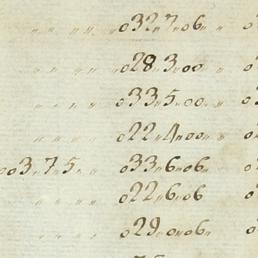 " " " " 032"7"06" " 0
" " " " 028"3"00 " 0
" " " " 033"5"00" " 0
" " " " 022"4"00" " 0
003"7"5" " 033"6"06 0
" " " " 022"6"06 0
" " " " 029"0"06" 0